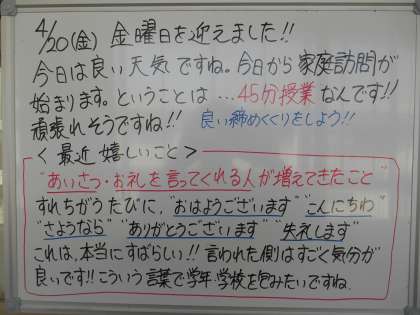 4/20(金) 金曜日を迎えました!!
今日は良い天気ですね。今日から家庭訪問が
始まります。ということは…45分授業なんです!!
頑張れそうですね!! 良い締めくくりをしよう!!
<最近嬉しいこと>
"あいさつ・お礼を言ってくれる人が増えてきたこと"
すれちがうたびに、"おはようございます" "こんにちわ"
"さようなら" "ありがとうございます" "失礼します"
これは、本当にすばらしい!! 言われた側はすごく気分が
良いです!! こういう言葉で学年、学校を包みたいですね。